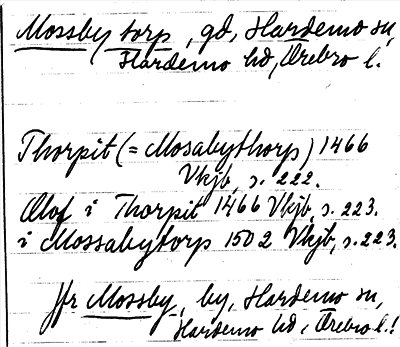 Mossbytorp, gd, Hardemo sn,
Hardemo hd, Örebro l.
Thorpit (= Mosabythorp) 1466
Vkjb, s. 222.
Olof i Thorpit 1466 Vkjb, s. 223.
i Mossabytorp 1502 Vkjb, s. 223.
Jfr Mossby, by, Hardemo sn,
Hardemo hd, Örebro l.!